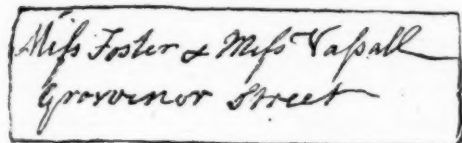 Miſs Foster & Miſs Vaſsall
Grosvenor Street